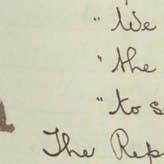 "We
"the
"to s
The Rep